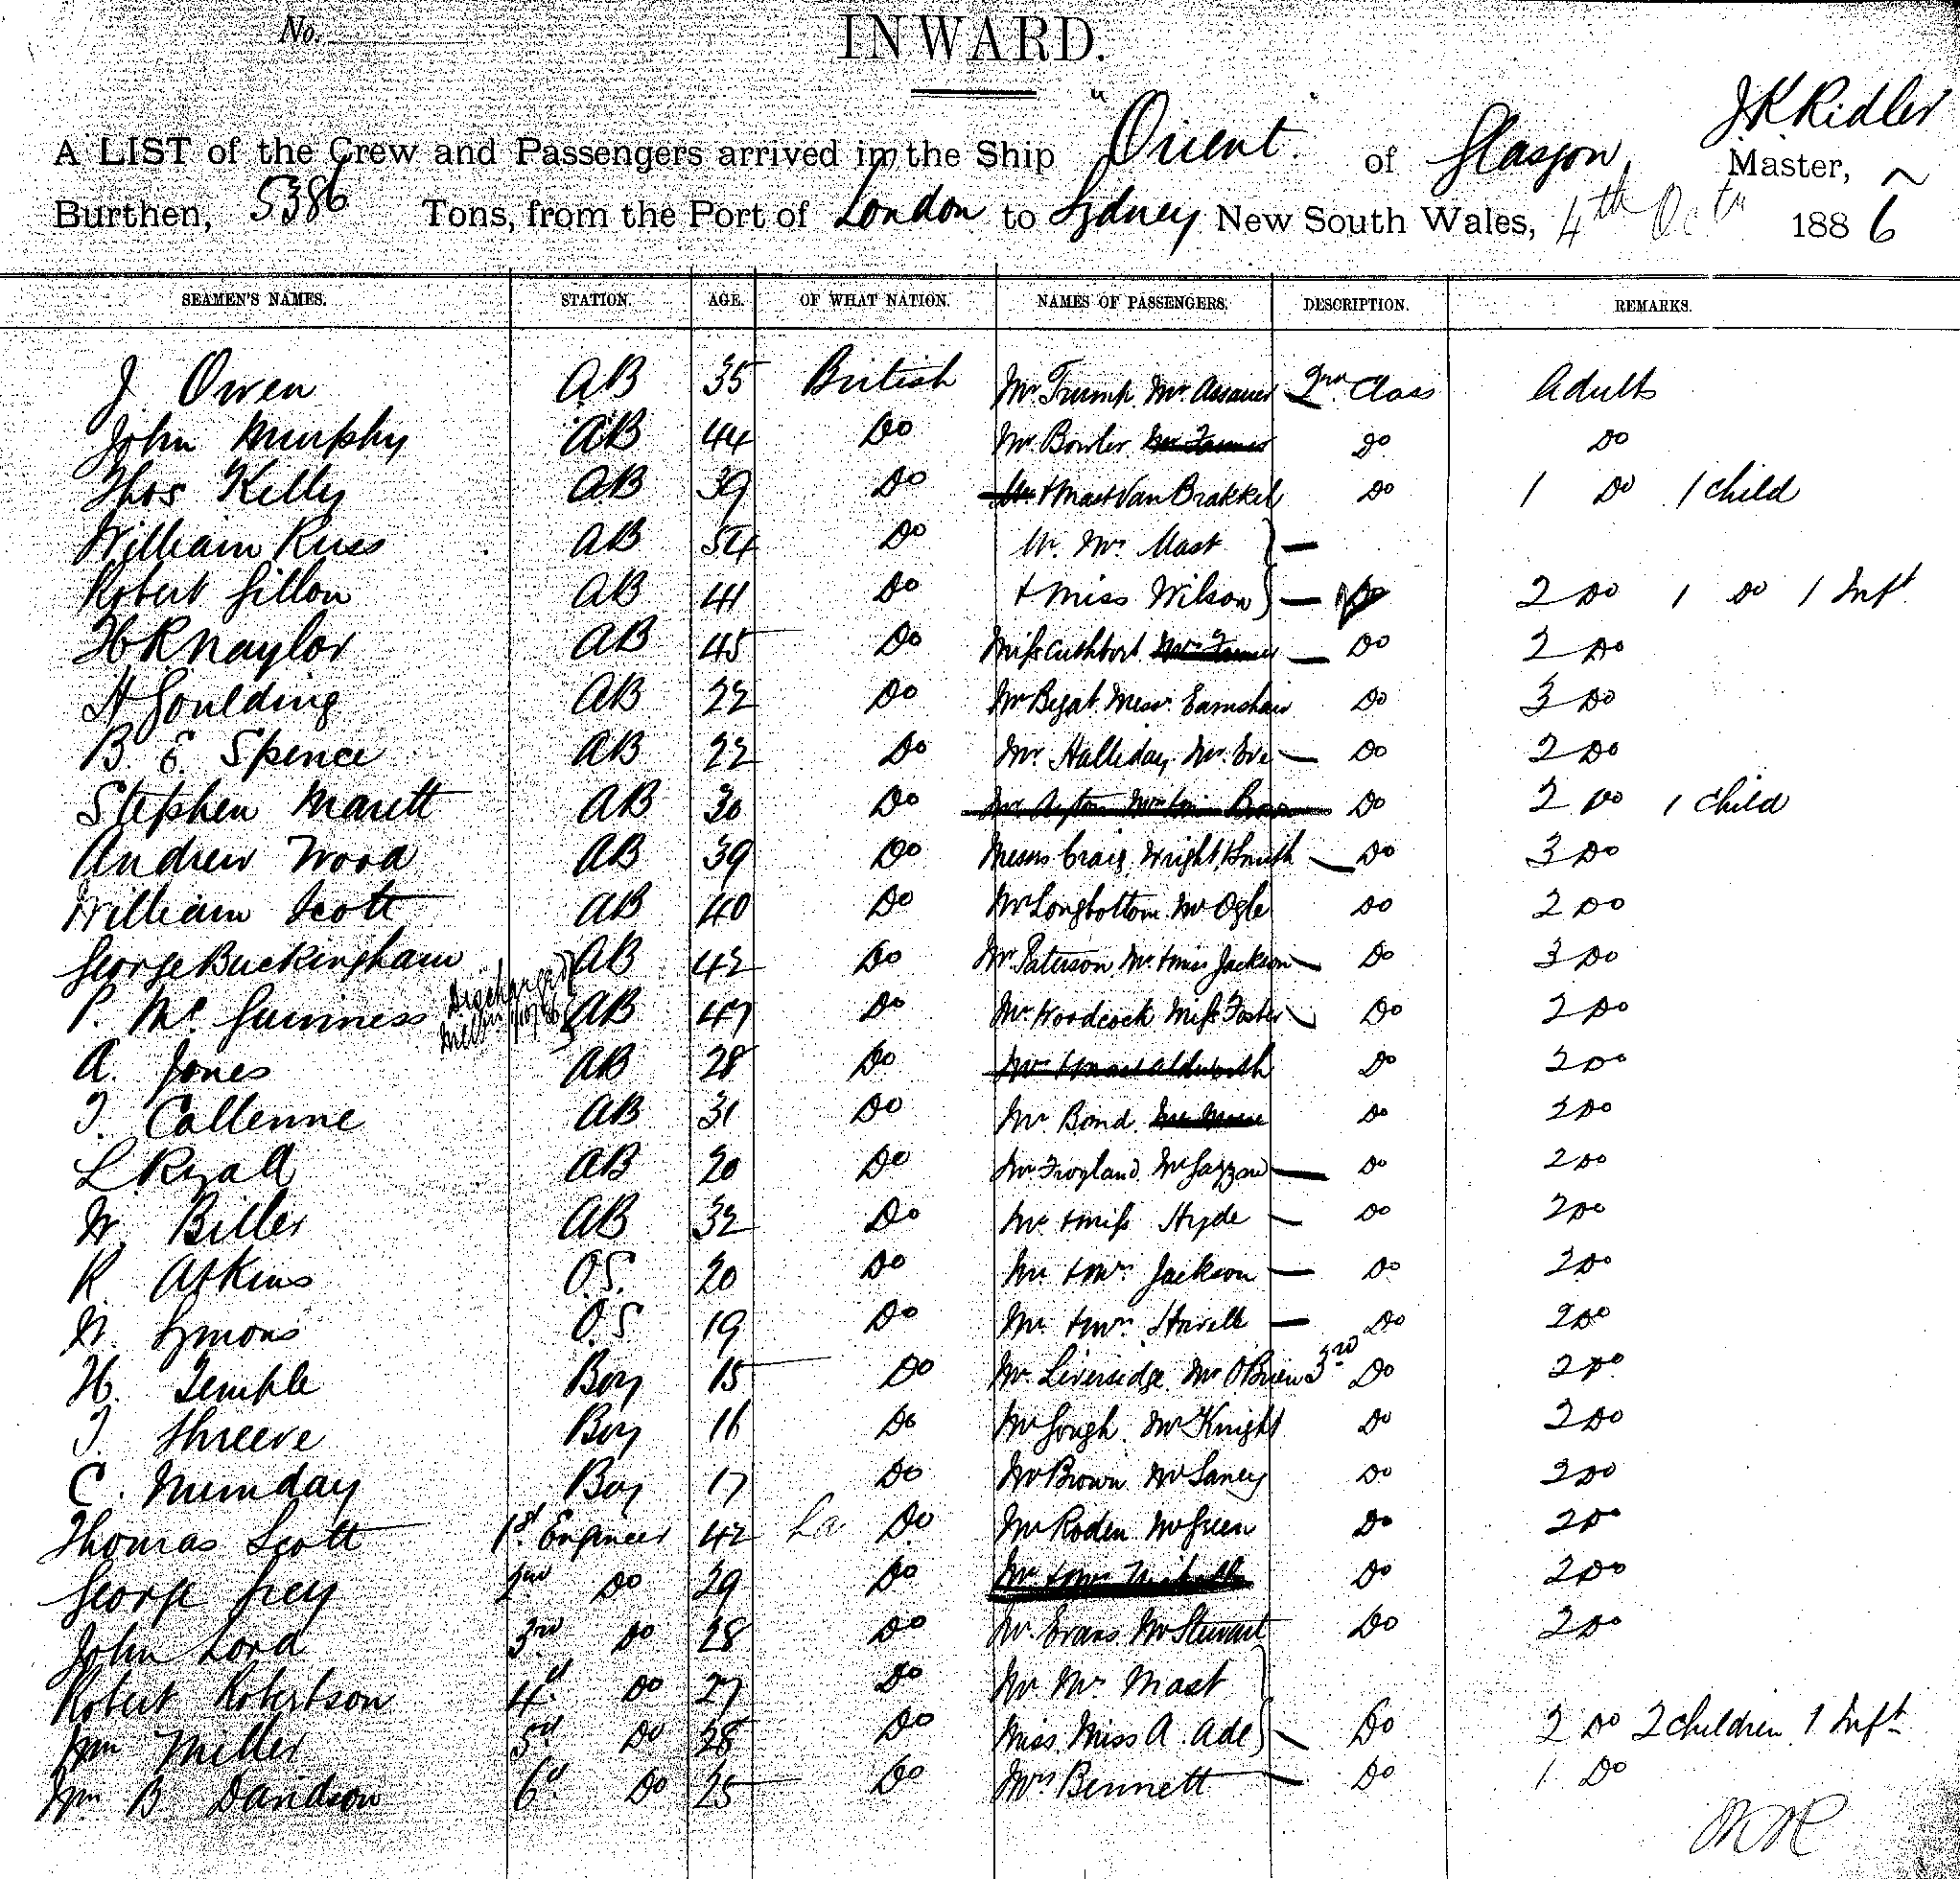 No.
INWARD.
A LIST of the Crew and Passengers arrived in the Ship "Orient" of Glasgow, J K Ridler Master,
Burthen, 5386 Tons, from the Port of London to Sydney New South Wales, 4th Octr 1886
SEAMEN'S NAMES. STATION. AGE. OF WHAT NATION. NAMES OF PASSENGERS. DESCRIPTION. REMARKS.
J. Owen AB 35 British Mr. Trump. Mr. 2nd Class Adults
John Murphy AB 44 Do Mr. Bowler Do Do
Thos Kelly AB 39 Do + Mast Van Brakkel Do 1 Do 1 child
William Russ AB 54 Do Mr. Mrs. Mast
Robert Gillon AB 41 Do + Miss Wilson Do 2 Do 1 Do 1 Inft
H R Naylor AB 45 Do Miss Cuthbert Do 2 Do
H Goulding AB 22 Do Mr Messrs Earnshaw Do 3 Do
B. E. Spence AB 22 Do Mr. Halliday Mr. Eve Do 2 Do
Stephen Marett AB 30 Do Do 2 Do 1 child
Andrew Wood AB 39 Do Messrs Craig, Wright, Smith Do 3 Do
William Scott AB 40 Do Mr Longbottom Mr Ogle Do 2 Do
George Buckingham AB 42 Do Mr. Paterson Mr. + Miss Jackson Do 3 Do
P. Mc Guinness Discharged AB 47 Do Mr. Woodcock Miss Foster Do 2 Do
A. Jones AB 28 Do Do 2 Do
T. Callenne AB 31 Do Mr. Bond Do 2 Do
L Ryall AB 20 Do Mr Froyland Do 2 Do
W. Biller AB 32 Do Mr + Miss Hyde Do 2 Do
R. Atkins O.S. 20 Do Mr. + Mrs. Jackson Do 2 Do
W. Symons O.S 19 Do Mr. + Mrs. Do 2 Do
H. Temple Boy 15 Do Mr. Liversidge Mr O'Brien 3rd Do 2 Do
T. Shreeve Boy 16 Do Mr Gough. Mr Knight Do 2 Do
C. Munday Boy 17 Do Mr Brown Mr Do 2 Do
Thomas Scott 1st Engineer 42 Do Mr Roden Mr Green Do 2 Do
George Grey 2nd Do 29 Do Do 2 Do
John Lord 3rd Do 28 Do Mr. Evans Mr Stewart Do 2 Do
Robert Robertson 4th Do 27 Do Mr Mrs. Mast
Wm Miller 5th Do 28 Do Miss. Miss A. Ade Do 2 Do 2 children 1 Inft
Wm B Davidson 6th Do 25 Do Mrs Bennett Do 1 Do